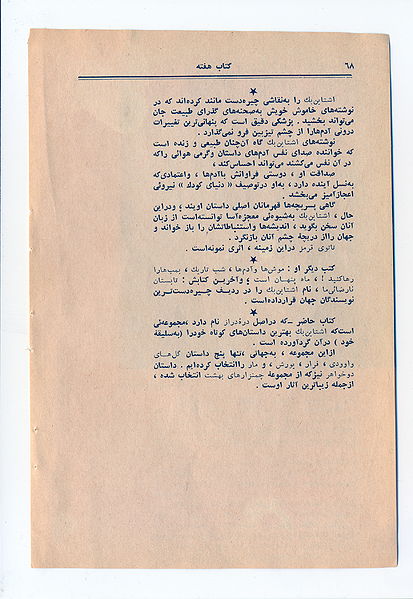 ۶۸
کتاب هفته
★
اشتاین‌بك را به‌نقاشی چیره‌دست مانند کرده‌اند که در
نوشته‌های خاموش خویش به‌صحنه‌های گذرای طبیعت جان
می‌تواند بخشید . پزشکی دقیق است که پنهانی‌ترین تغییرات
درونی آدمهارا از چشم تیزبین فرو نمی‌گذارد .
نوشته‌های اشتاین‌بك گاه آن‌چنان طبیعی و زنده است
که خواننده صدای نفس آدم‌های داستان وگرمی هوائی راکه
در آن نفس می‌کشند می‌تواند احساس‌کند .
صداقت او ، دوستی فراوانش باآدم‌ها ، واعتمادی‌که
به‌نسل آینده دارد ، به‌او درتوصیف « دنیای کودك » نیروئی
اعجازآمیز می‌بخشد .
گاهی پسربچه‌ها قهرمانان اصلی داستان اویند ؛ ودراین
حال ، اشتاین‌بك به‌شیوه‌ئی معجزه‌آسا توانسته‌است از زبان
آنان سخن بگوید ، اندیشه‌ها واستنباطاتشان را باز خواند و
جهان رااز دریچهٔ چشم آنان بازنگرد .
تاتوی قرمز دراین زمینه ، اثری نمونه‌است .
★
کتب دیگر او : موش‌ها وآدم‌ها ، شب تاریك ، بمب‌هارا
رهاکنید ! ، ماه پنهان است ؛ وآخرین کتابش : تابستان
نارضائی‌ما ، نام اشتاین‌بك را در ردیف چیره‌دست‌ترین
نویسندگان جهان قرارداده‌است .
★
کتاب حاضر ــ که دراصل درهٔ‌دراز نام دارد ، مجموعه‌ئی
است‌که اشتاین‌بك بهترین داستان‌های کوتاه خودرا (به‌سلیقهٔ
خود ) درآن گردآورده است .
ازاین مجموعه ، به‌جهاتی ، تنها پنج داستان گل‌های
داوودی ، فرار ، یورش ، و مار راانتخاب کرده‌ایم . داستان
دوخواهر نیزکه از مجموعهٔ چمنزارهای بهشت انتخاب شده ،
ازجمله زیباترین آثار اوست .